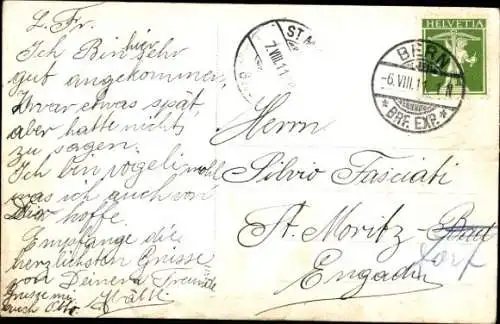 L. Fr.
Ich Bin hier sehr
gut angekommen,
Zwar etwas spät,
aber hatte nichts
zu sagen.
Ich bin vogeli wohl
was ich auch von
Dir hoffe.
Empfange die
herzlichsten Grüsse
von Deinem Freunde
Grüsse mir
auch Otto.
Wälti
ST. M
7.VIII.11
HELVETIA
BERN
-6.VIII.11
* BRF. EXP. *
Herrn
Silvio Fasciati
St. Moritz-Bad
Dorf
Engadin